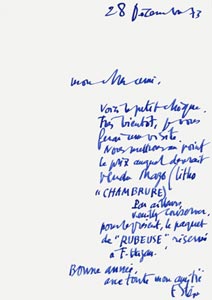 28 Décembre 73
mon cher ami.
Voici le petit chèque.
Très bientôt, je vous
ferai une visite.
Nous mettrons au point
le prix auquel devrait
vendre Mazo (litho
"CHAMBRURE)
Par ailleurs,
veuillez conserver,
pour le moment, le paquet
de "RUBEUSE" réservé
à F.
Bonne année,
avec toute mon amitié